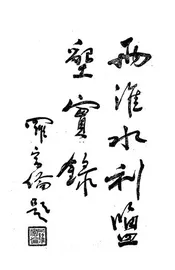 兩淮水利鹽
墾實錄
羅家倫題